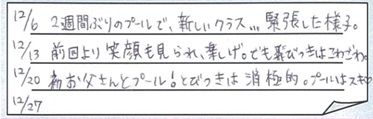 12/6 2週間ぶりのプールで、新しいクラス… 緊張した様子。
12/13 前回より笑顔も見られ、楽しげ。でも飛びつきはこわごわ。
12/20 初お父さんとプール!とびつきは消極的。プールはスキ♡
12/27